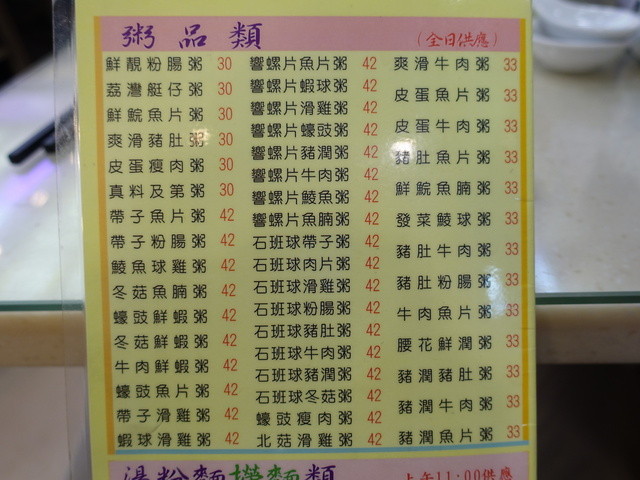 粥品類 (全日供應)
鮮靚粉腸粥 30
荔灣艇仔粥 30
鮮鯇魚片粥 30
爽滑豬肚粥 30
皮蛋瘦肉粥 30
真料及第粥 30
帶子魚片粥 42
帶子粉腸粥 42
鯪魚球雞粥 42
冬菇魚腩粥 42
蠔豉鮮蝦粥 42
冬菇鮮蝦粥 42
牛肉鮮蝦粥 42
蠔豉魚片粥 42
帶子滑雞粥 42
蝦球滑雞粥 42
響螺片魚片粥 42
響螺片蝦球粥 42
響螺片滑雞粥 42
響螺片蠔豉粥 42
響螺片豬潤粥 42
響螺片牛肉粥 42
響螺片鯪魚粥 42
響螺片魚腩粥 42
石班球帶子粥 42
石班球肉片粥 42
石班球滑雞粥 42
石班球粉腸粥 42
石班球豬肚粥 42
石班球牛肉粥 42
石班球豬潤粥 42
石班球冬菇粥 42
蠔豉瘦肉粥 42
北菇滑雞粥 42
爽滑牛肉粥 33
皮蛋魚片粥 33
皮蛋牛肉粥 33
豬肚魚片粥 33
鮮鯇魚腩粥 33
發菜鯪球粥 33
豬肚牛肉粥 33
豬肚粉腸粥 33
牛肉魚片粥 33
腰花鮮潤粥 33
豬潤豬肚粥 33
豬潤牛肉粥 33
豬潤魚片粥 33
湯粉麵撈麵類 上午11:00供應